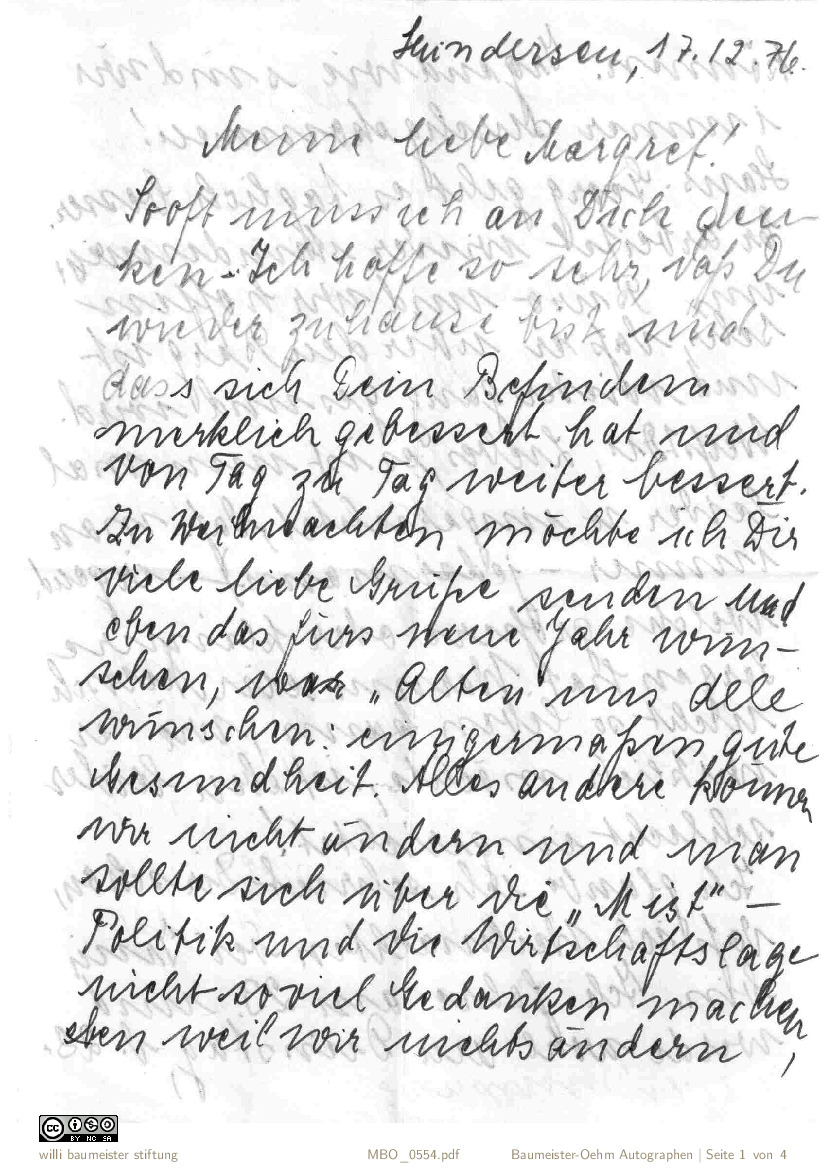 17.12.76.
Meine liebe Margret!
Sooft muss ich an Dich den-
ken. Ich hoffe so sehr, daß Du
wieder zuhause bist und
dass sich Dein Befinden
merklich gebessert hat und
von Tag zu Tag weiter bessert.
Zu Weihnachten möchte ich Dir
viele liebe Grüße senden und
eben das fürs neue Jahr wün-
schen, was „Alten" uns alle
wünschen: einigermaßen gute
Gesundheit. Alles andere können
wir nicht ändern und man
sollte sich über die „Mist" –
Politik und die Wirtschaftslage
nicht soviel Gedanken machen,
eben weil wir nichts ändern,
BY NC SA
willi baumeister stiftung MBO_0554.pdf Baumeister-Oehm Autographen | Seite 1 von 4